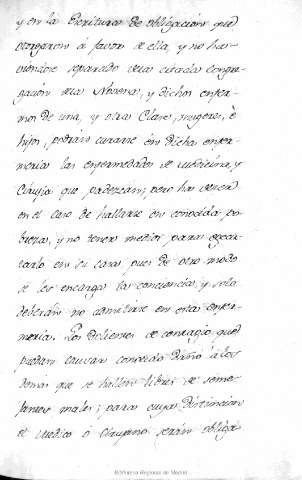 y en la Escritura de obligacion que
otorgaron á favor de ella, y no ha-
viendose separado dela citada Congre-
gacion dela Novena, y dichos enfer-
mos de una, y otra Clase, mugeres, è
hijos, podrán curarse en dicha enfer-
meria las enfermedades de Medicina, y
Cirujia que padezcan; pero ha de ser
en el caso de hallarse en conocida po-
breza, y no tener medios para egecu-
tarlo en su casa pues de otro modo
se les encarga las conciencias, y solo
deberán no admitirse en esta enfer-
meria. Los dolientes de contagio que
puedan causar conocido daño á los
demas que se hallen libres de seme-
jantes males; para cuya distincion
el Medico ò Cirujano serán obliga-
Biblioteca Regional de Madrid